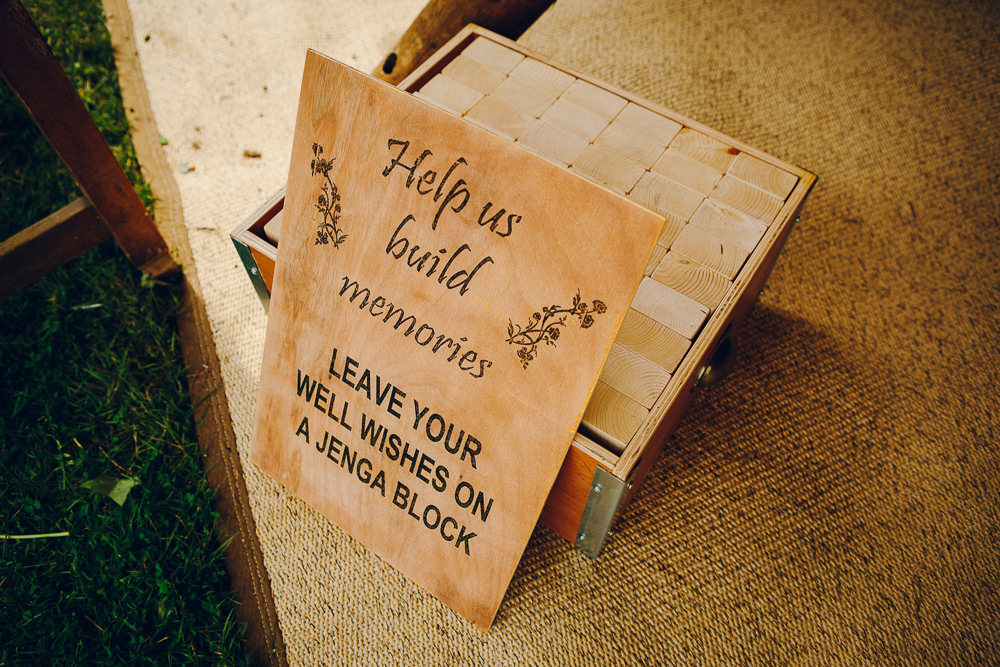 Help us
build
memories
LEAVE YOUR
WELL WISHES ON
A JENGA BLOCK